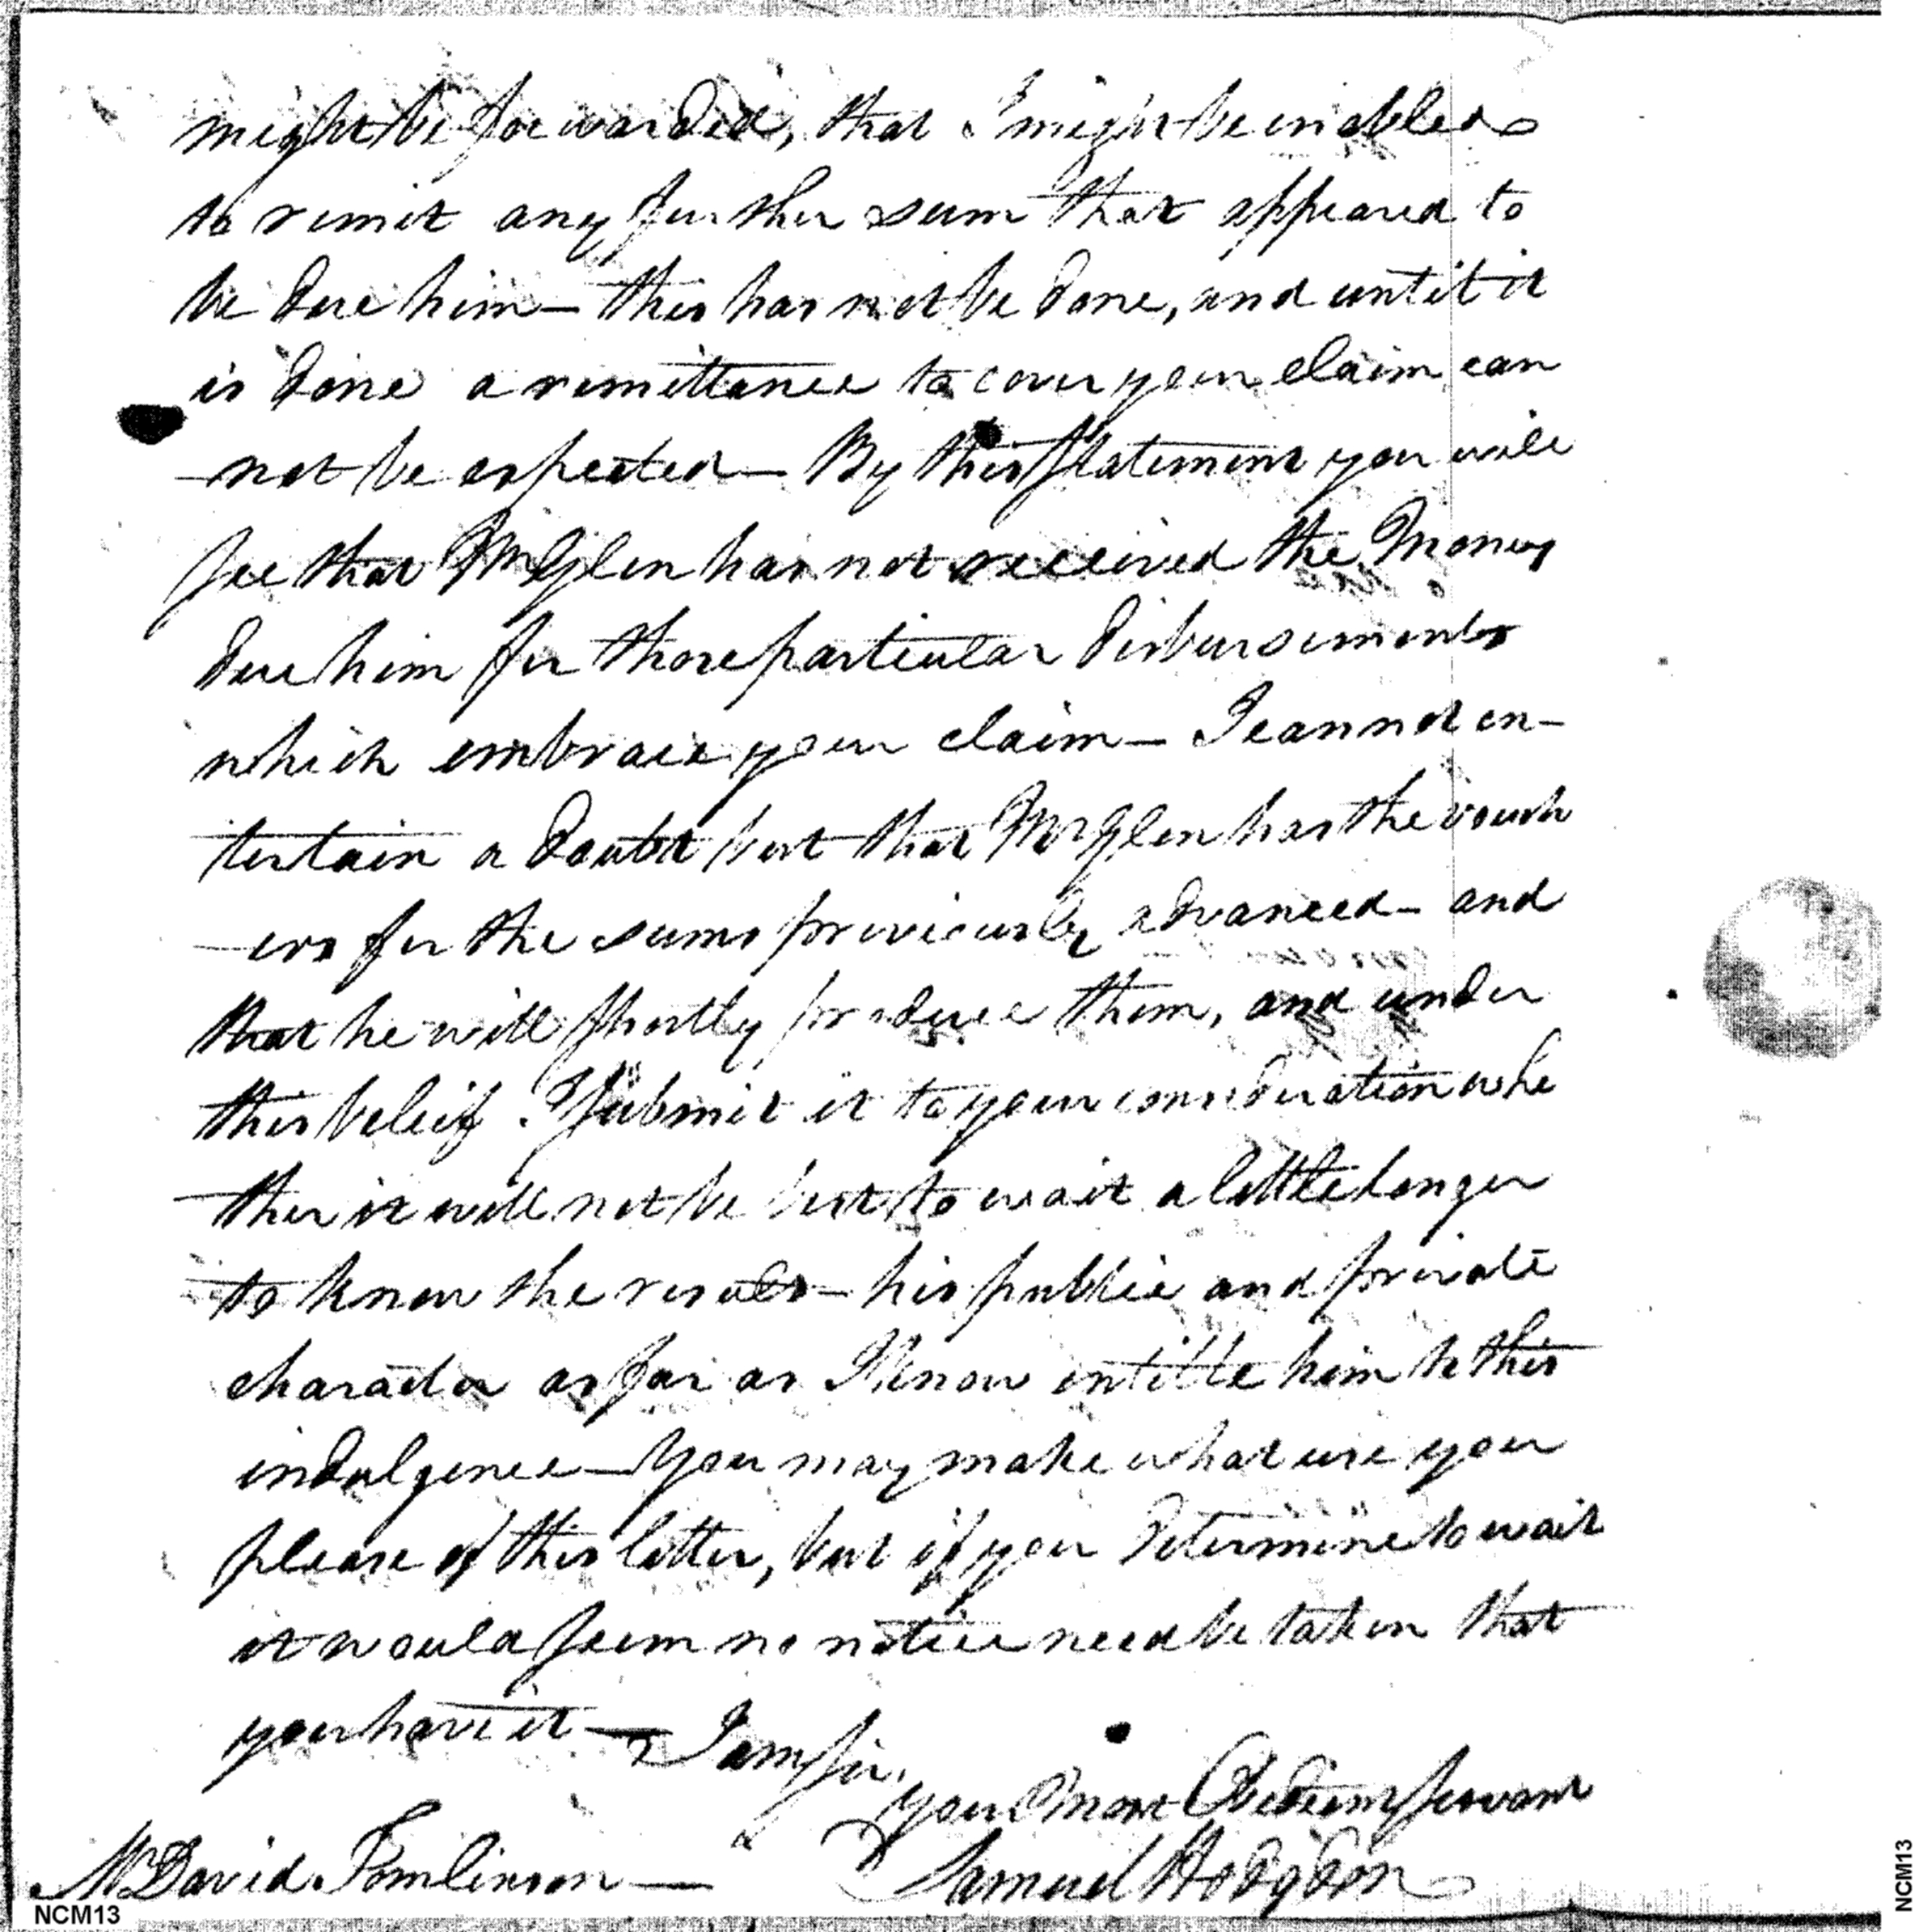 might be forwarded, that I might be enabled
to remit any further sum that appeared to
be due him — this has not be done, and until it
is done a remittance to cover your claim can
not be expected — By this statement you will
see that Mr Glen has not received the Money
due him for those particular disbursements
which embrace your claim — I cannot en-
tertain a doubt but that Mr Glen has the vouch
-ers for the sums previously advanced — and
that he will shortly produce them, and under
this beleif. I submit it to your consideration whe
ther it will not be best to wait a little longer
to know the result — his public and private
character as far as I know entitle him to this
indulgence — You may make what use you
please of this letter, but if you determine to wait
it would seem no notice need be taken that
you have it — I am sir,
your most Obedient servant
Mr David Tomlinson — Samuel Hodgdon
NCM13
NCM13